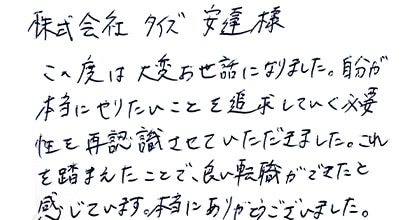 株式会社 タイズ 安達様
この度は大変お世話になりました。自分が
本当にやりたいことを追求していく必要
性を再認識させていただきました。これ
を踏まえたことで、良い転職ができたと
感じています。本当にありがとうございました。